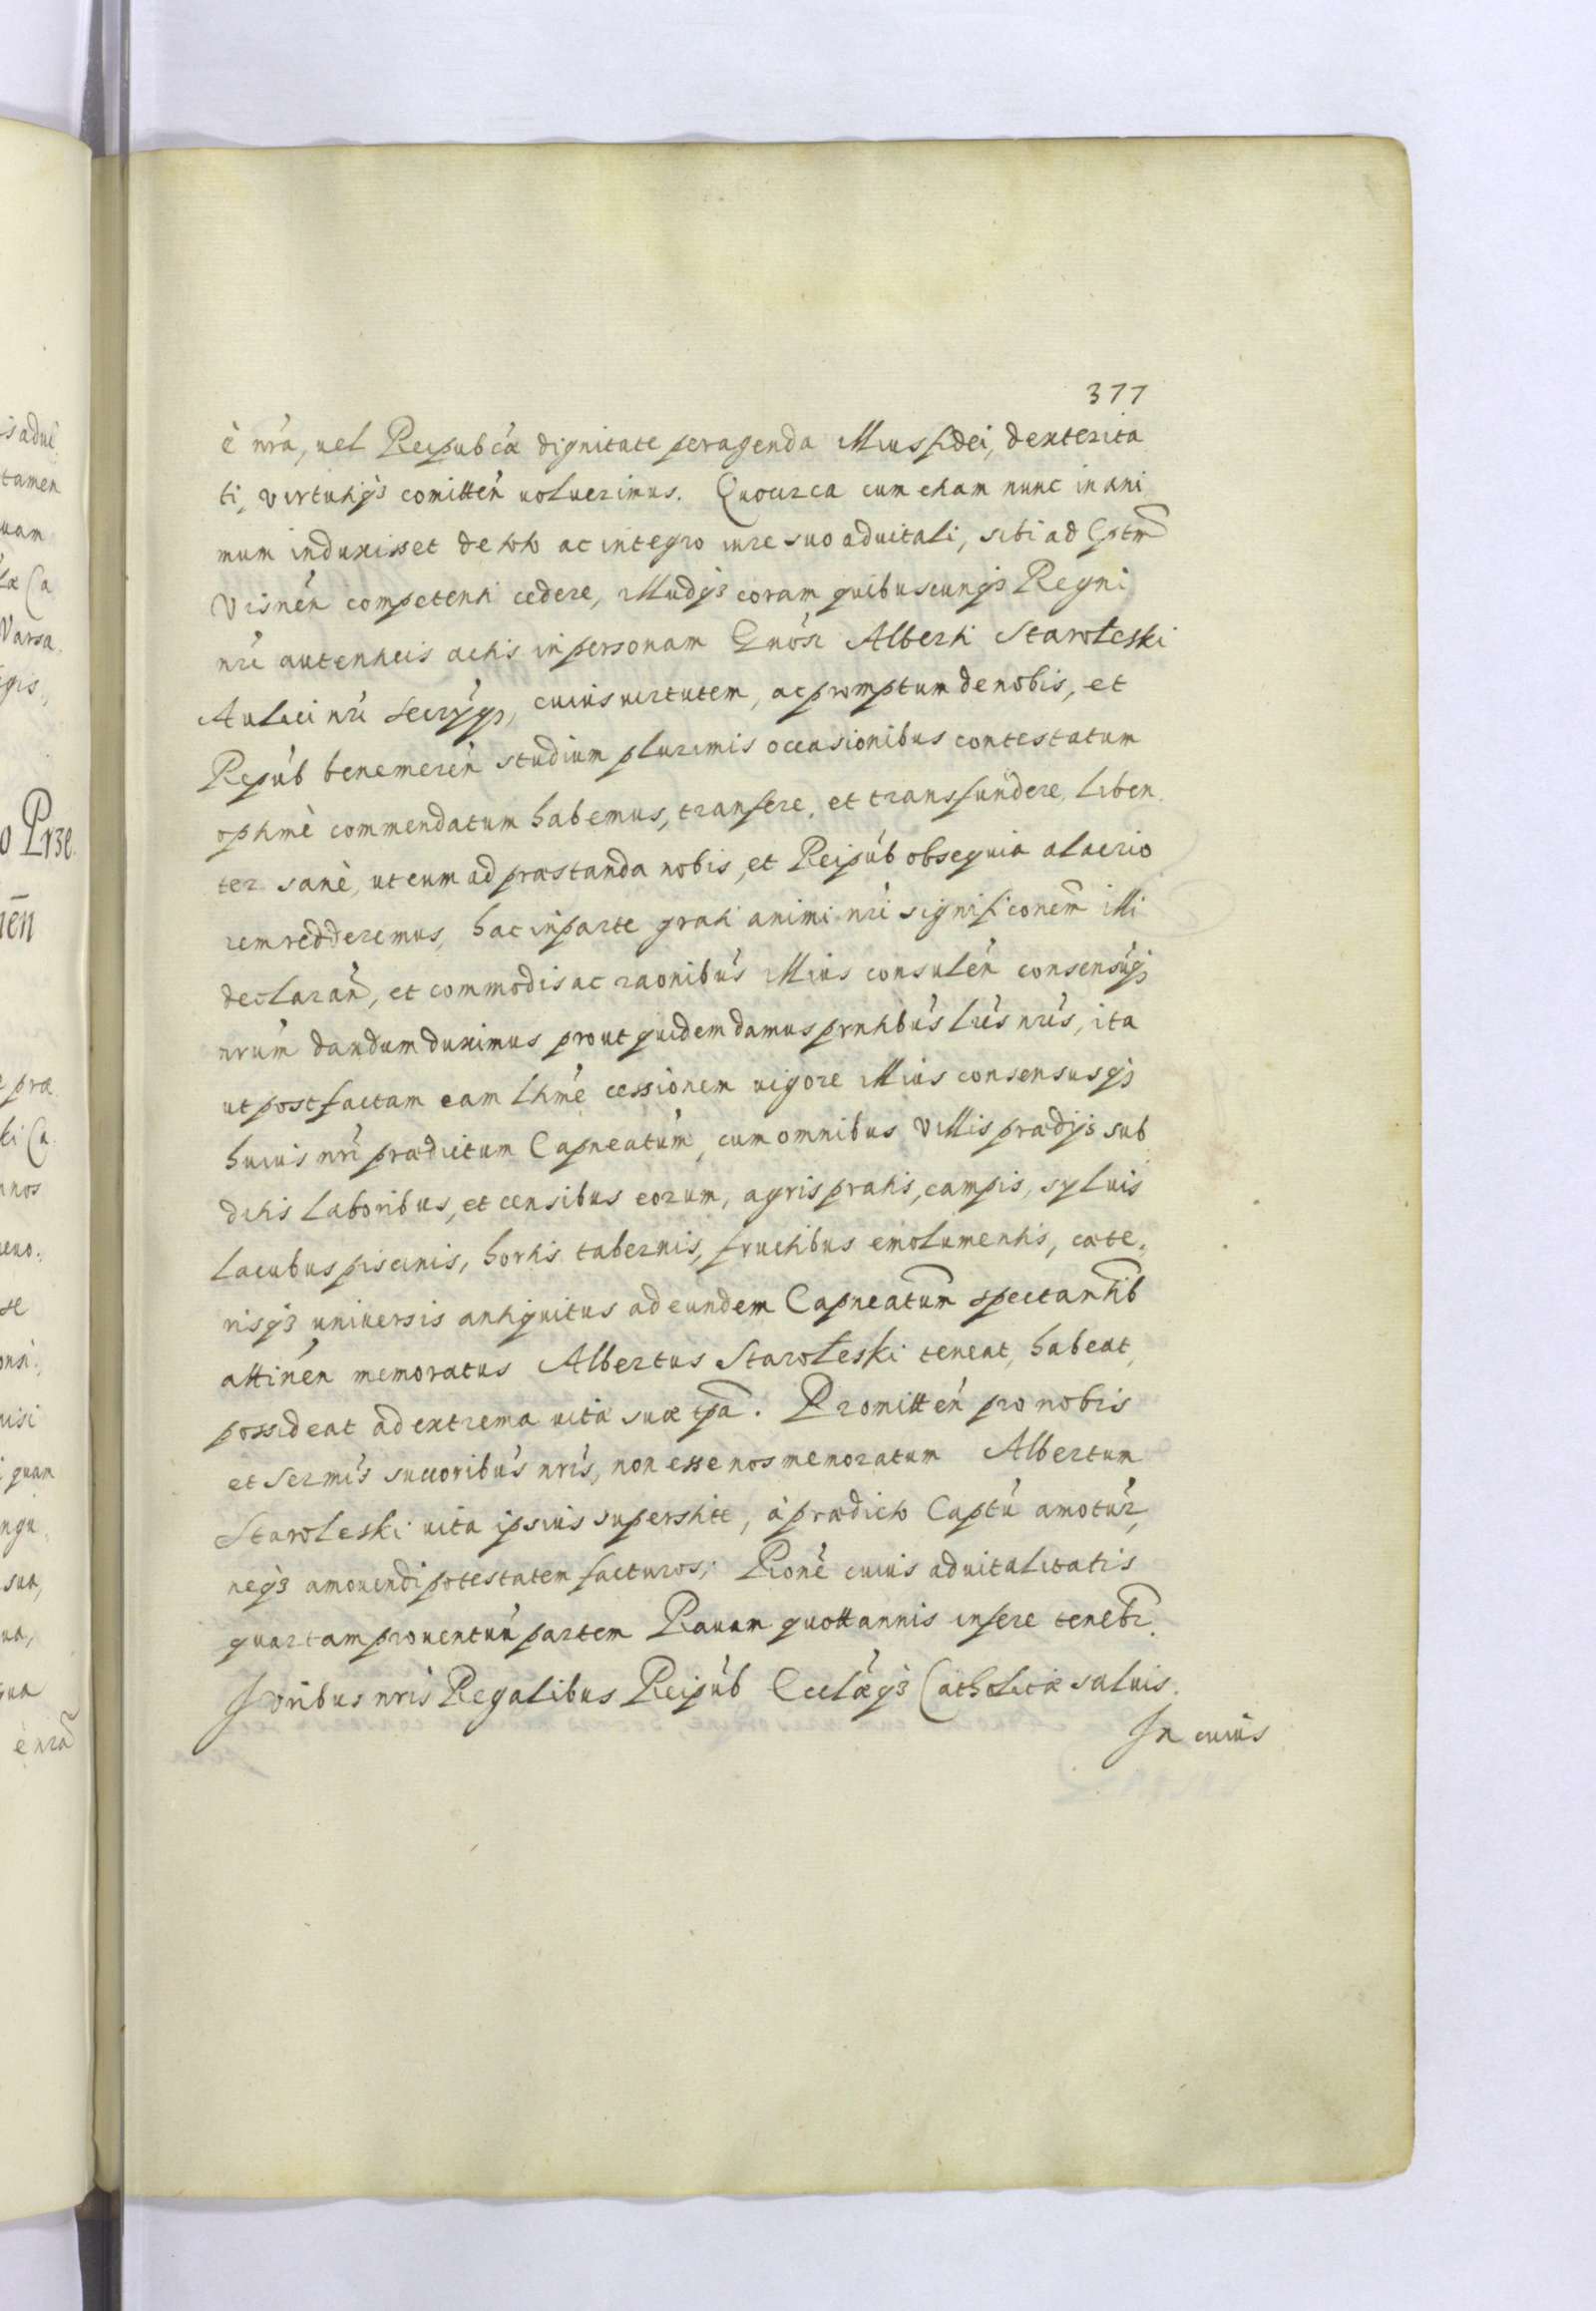 377
è nrã, uel Reipubcæ dignitate peragenda illius fidei, dexterita
ti, virtutiq3 comitten̄ uoluerimus. Quocirca cum etiam nunc in ani
mum induxisset de toto ac integro iure suo aduitali, sibi ad Cptm̃
Visnen̄ competenti cedere, illudq3 coram quibuscunq3 Regni
nri autenticis actis in personam Gnosi Alberti Staroleski
Aulici nri Secryq3, cuius uirtutem, ac promptum de nobis, et
Repub benemeren̄ studium plurimis occasionibus contestatum
optimè commendatum habemus, transfere, et transfundere, liben
ter sanè, ut eum ad præstanda nobis, et Reipub obsequia alacrio
rem redderemus, hac in parte grati animi nri significonem̃ illi
declaran̄, et commodis ac raonibus illius consulen̄ consensuq3
nrum dandum duximus prout quidem damus pntibus lris nris, ita
ut post factam eam lñme cessionem uigore illius consensusq3
huius nri prædictum Capneatum, cum omnibus villis prædijs sub
ditis laboribus, et censibus eorum, agris pratis, campis, syluis
lacubus piscinis, hortis tabernis, fructibus emolumentis, cæte,
risq3 uniuersis antiquitus ad eundem Capneatum̃ spectantib
attinen̄ memoratus Albertus Staroleski teneat, habeat,
possideat ad extrema uitæ suæ tpa. Promitten̄ pro nobis
et Sermis succoribus nris, non esse nos memoratum Albertum
Staroleski uita ipsius superstite, à prædicto Captu amotur,
neq3 amouendi potestatem facturos; Rione cuius aduitalitatis
quartam prouentuu partem Rauam quottannis infere tenebr̃.
Joribus nris Regalibus Reipub Ecclæq3 Catholicæ saluis.
In cuius